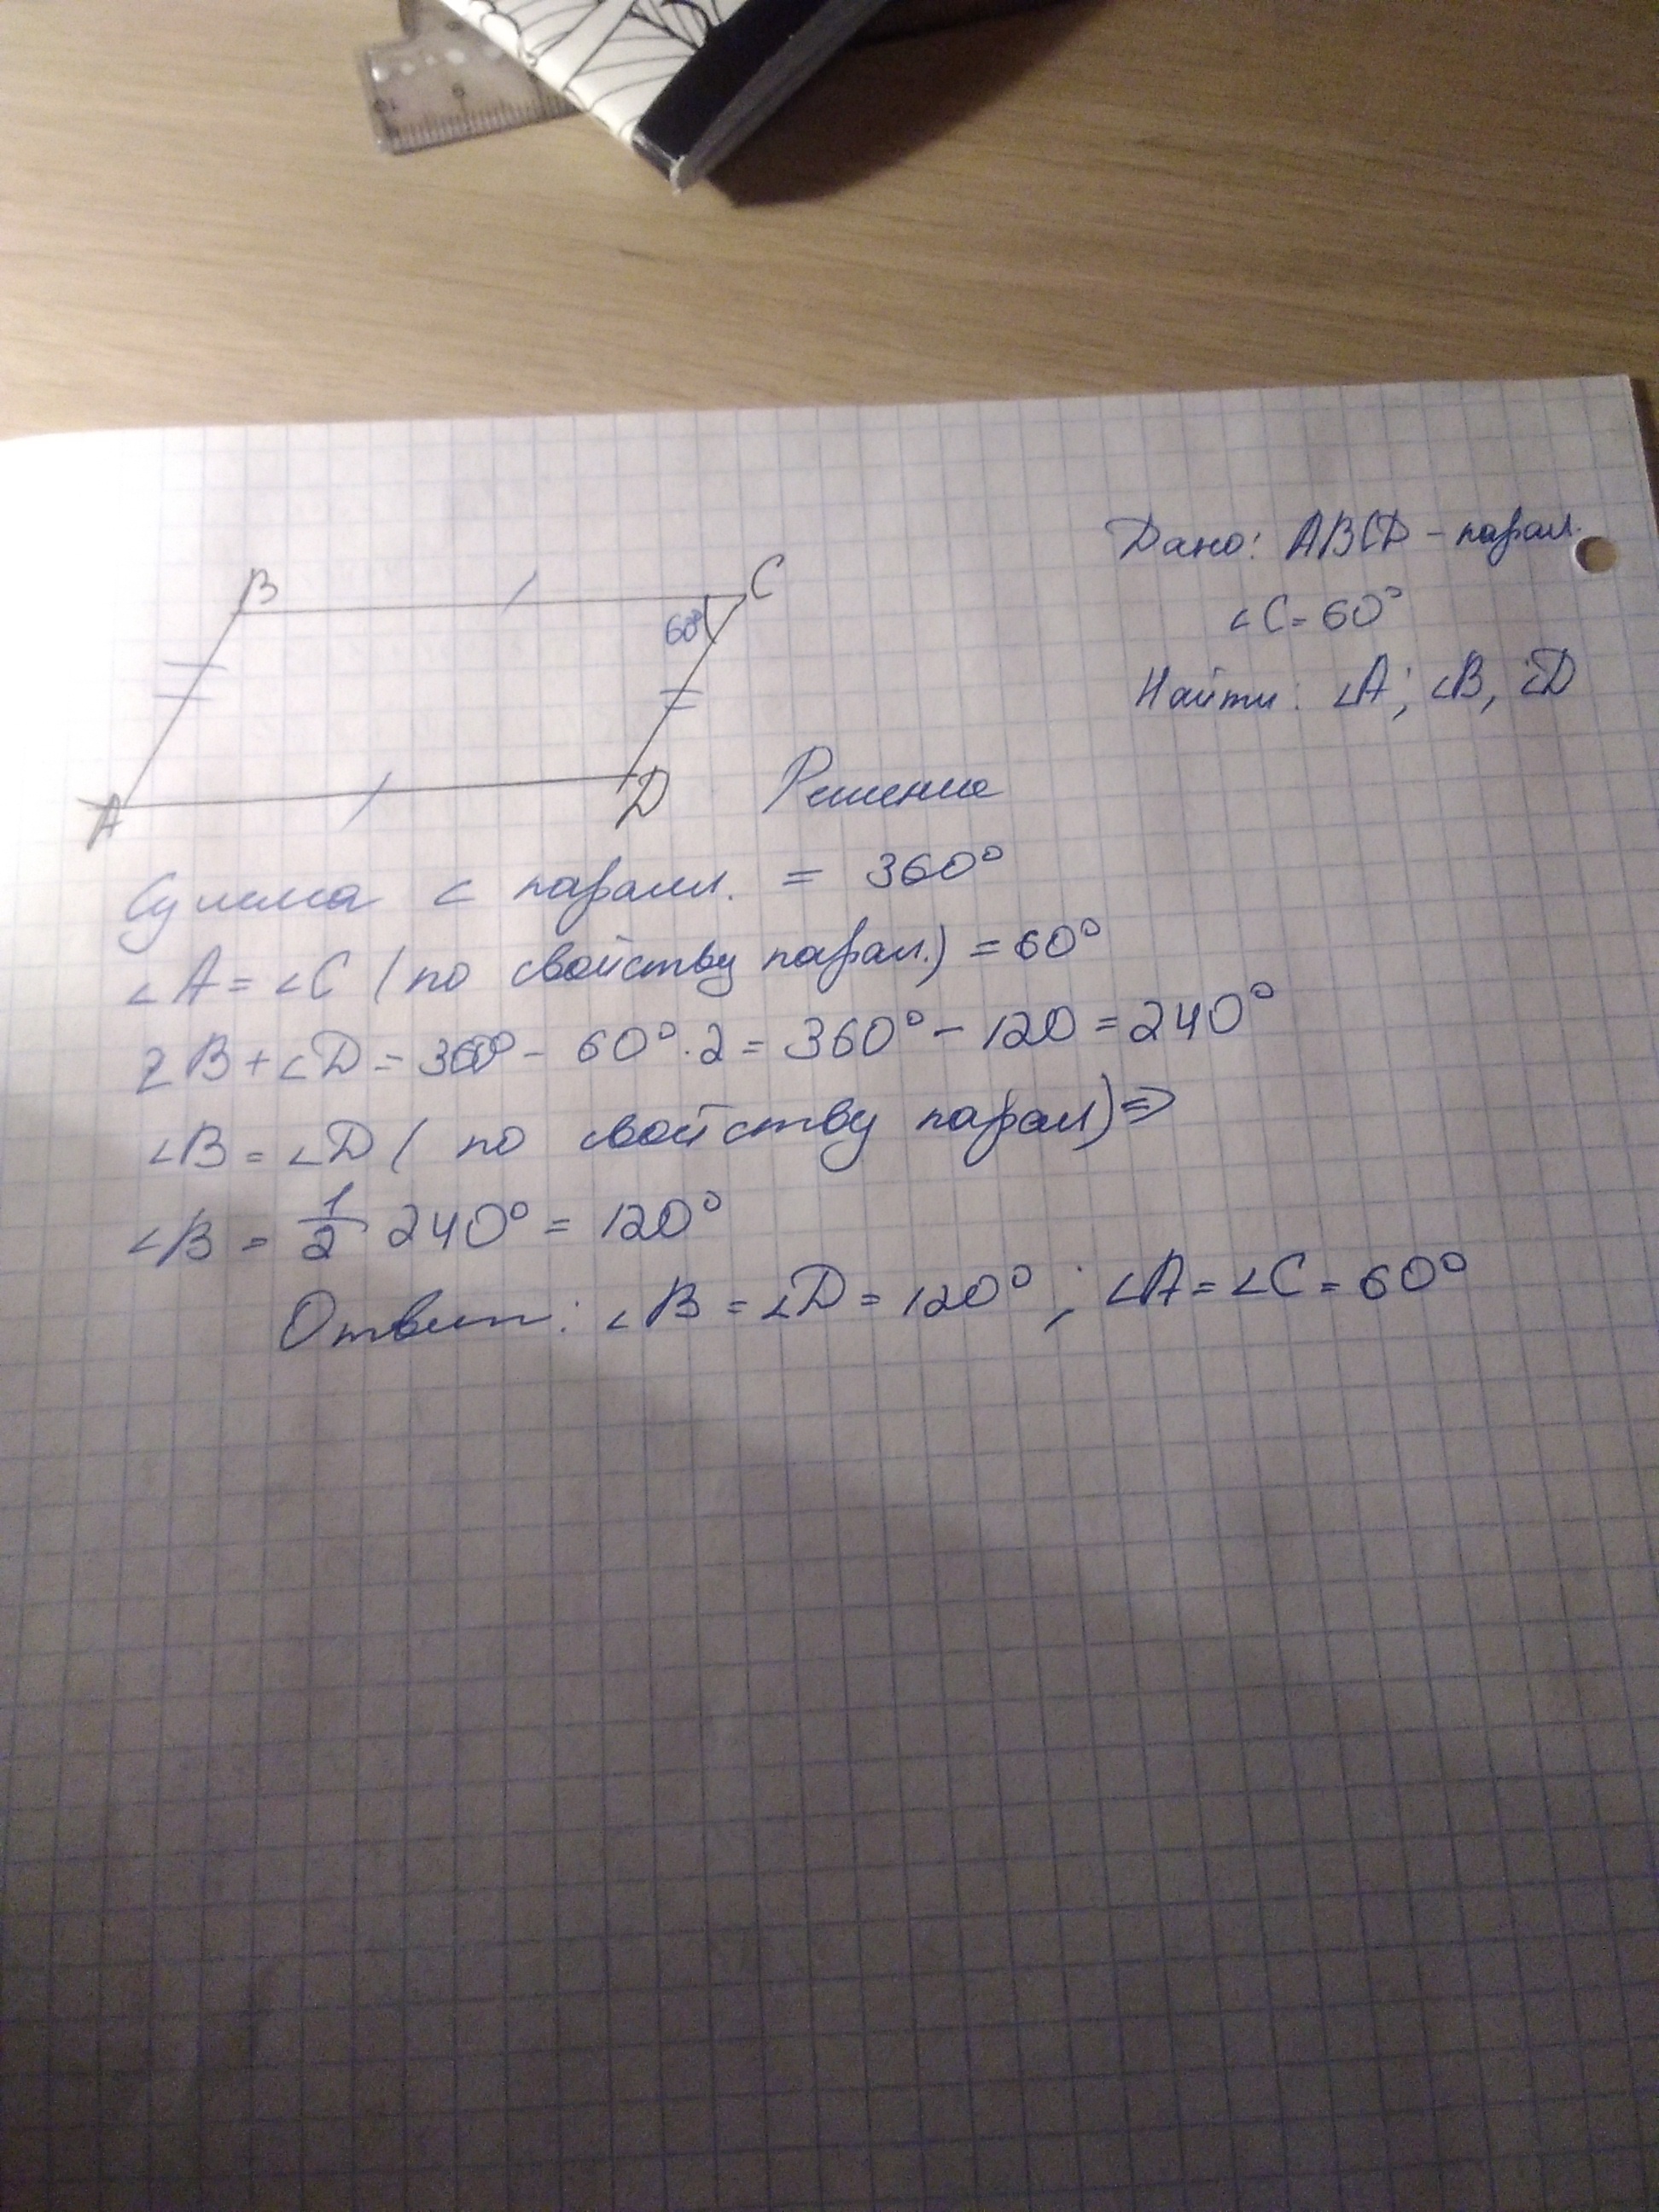 B
C
60°
A
D
Дано: ABCD - парал.
∠C = 60°
Найти: ∠A; ∠B, ∠D
Решение
Сумма ∠ паралл. = 360°
∠A = ∠C (по свойству парал.) = 60°
∠B + ∠D = 360° - 60° · 2 = 360° - 120 = 240°
∠B = ∠D ( по свойству парал) =>
∠B = 1/2 240° = 120°
Ответ: ∠B = ∠D = 120° ; ∠A = ∠C = 60°